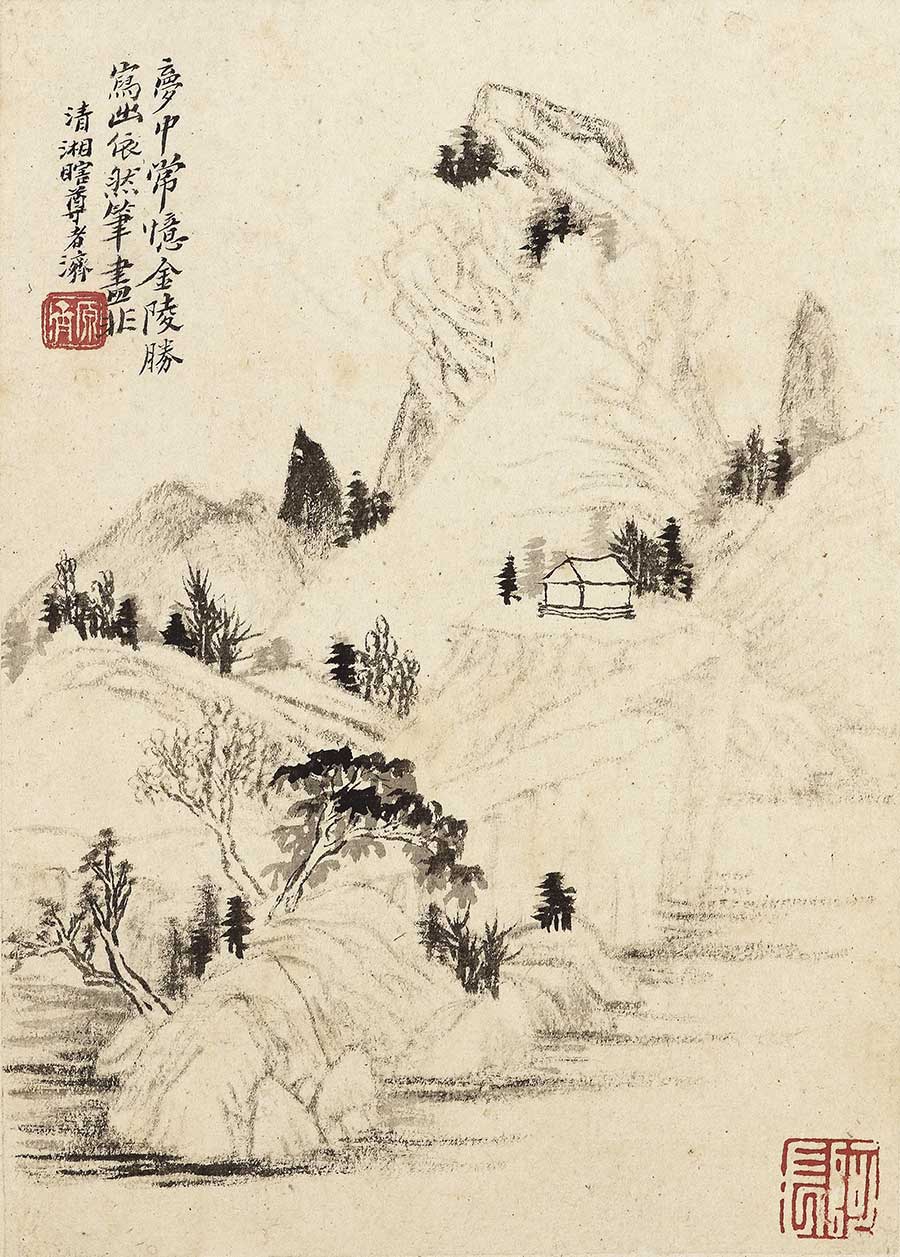 夢中常憶金陵勝
寫出依然筆畫非
清湘瞎尊者濟
原濟